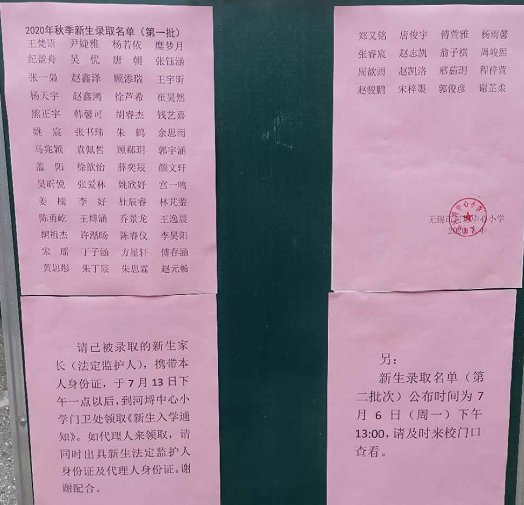 2020年秋季新生录取名单（第一批）
王梵语 尹婕雅 杨若依 糜梦月
纪盈舟 吴优 唐朝 张钰涵
张一枭 赵鑫泽 顾添瑞 王宇昕
杨天宇 赵鑫鸿 徐芦希 崔昊然
熊正宇 韩馨可 胡睿杰 钱艺嘉
姚宸 张书玮 朱鹤 余思雨
马兆颖 袁佩哲 顾郗玥 郭宇涵
盖阳 徐歆怡 薛奕辰 颜文轩
吴昕悦 张爱林 姚欣妤 宫一鸣
姜楠 李好 杜辰睿 林芘蓥
陈勇屹 王博涵 乔景龙 王逸晨
胡祖杰 许湉旸 陈睿仪 李昊阳
宋瑶 丁子涵 方星轩 傅存涵
黄思彤 朱丁宸 朱思霖 赵元畅
郑又铭 唐俊宇 傅萱雅 杨雨馨
张睿宸 赵志凯 翁子祺 周峻熙
周歆雨 赵凯洛 邢茹玥 程梓萱
赵骏鹏 宋梓槊 郭俊彦 谢芷柔
无锡市 中心小学
请已被录取的新生家
长（法定监护人），携带本
人身份证，于7月13日下
午一点以后，到河埒中心小
学门卫处领取《新生入学通
知》。如代理人来领取，请
同时出具新生法定监护人
身份证及代理人身份证。谢
谢配合。
另：
新生录取名单（第
二批次）公布时间为7
月6日（周一）下午
13:00，请及时来校门口
查看。